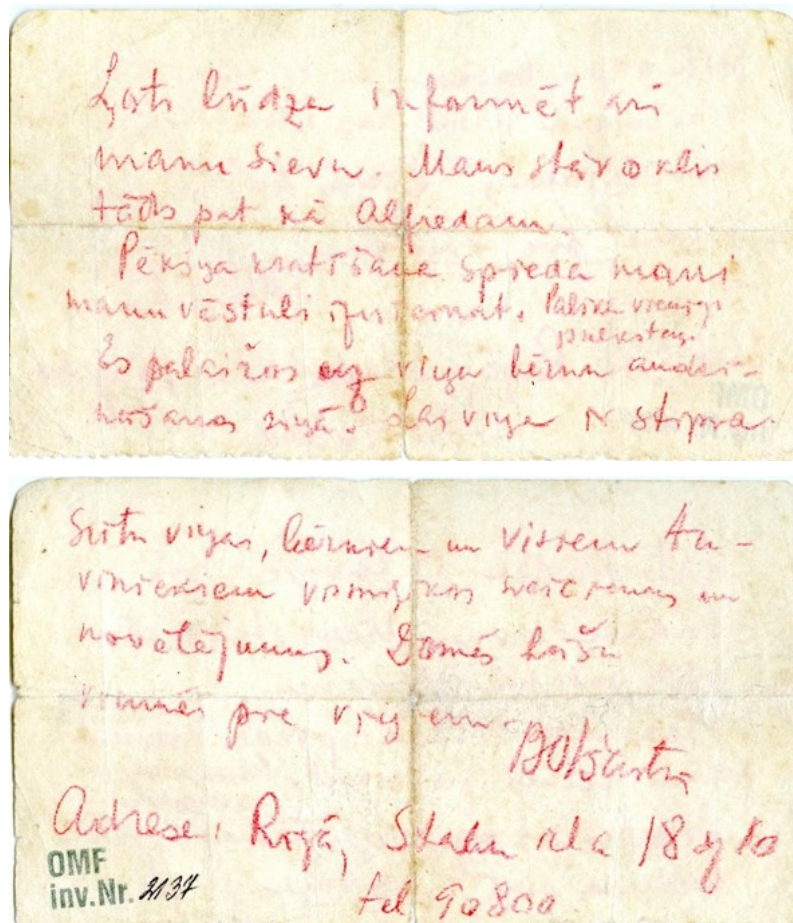 Ļoti lūdzu informēt arī
manu sievu. Mans stāvoklis
tāds pat kā Alfredam.
Pēkšņa kratīšana spieda mani
manu vēstuli iznīcināt. Palika vienīgi
pielikstais.
Es palaižos uz viņu bērnu audzi-
nāšanas ziņā. Lai viņa ir stipra.
Sūtu viņai, bērniem un visiem tu-
viniekiem vismīļākos sveicienus un
novēlējumus. Domās būšu
vienmēr pie viņiem.
Adrese: Rīgā, Stabu iela 18 dz 10
tel 90800
OMF
inv.Nr. 2137